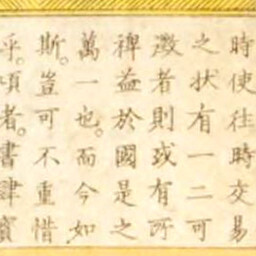 時使往時交易
之状有一二可
澂者則或有所
裨益於國是之
萬一也。而今如
斯。豈可不重惜
乎。項者。書肆賓